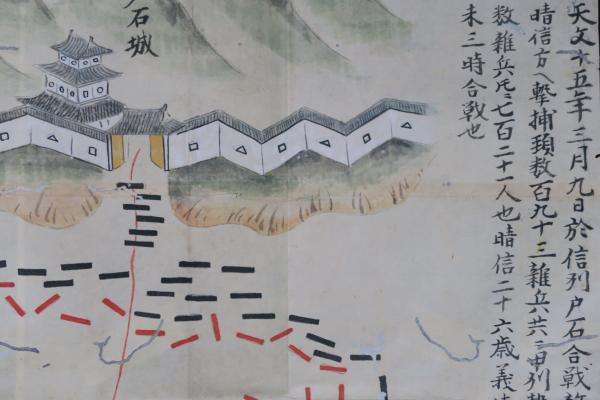 天文十五年三月九日於信列戸石合戦
晴信方へ撃捕頚数百九十三雑兵共ニ甲列
数雑兵氏ニ七百二十一人也晴信二十六歳義
未三時合戦也
戸石城